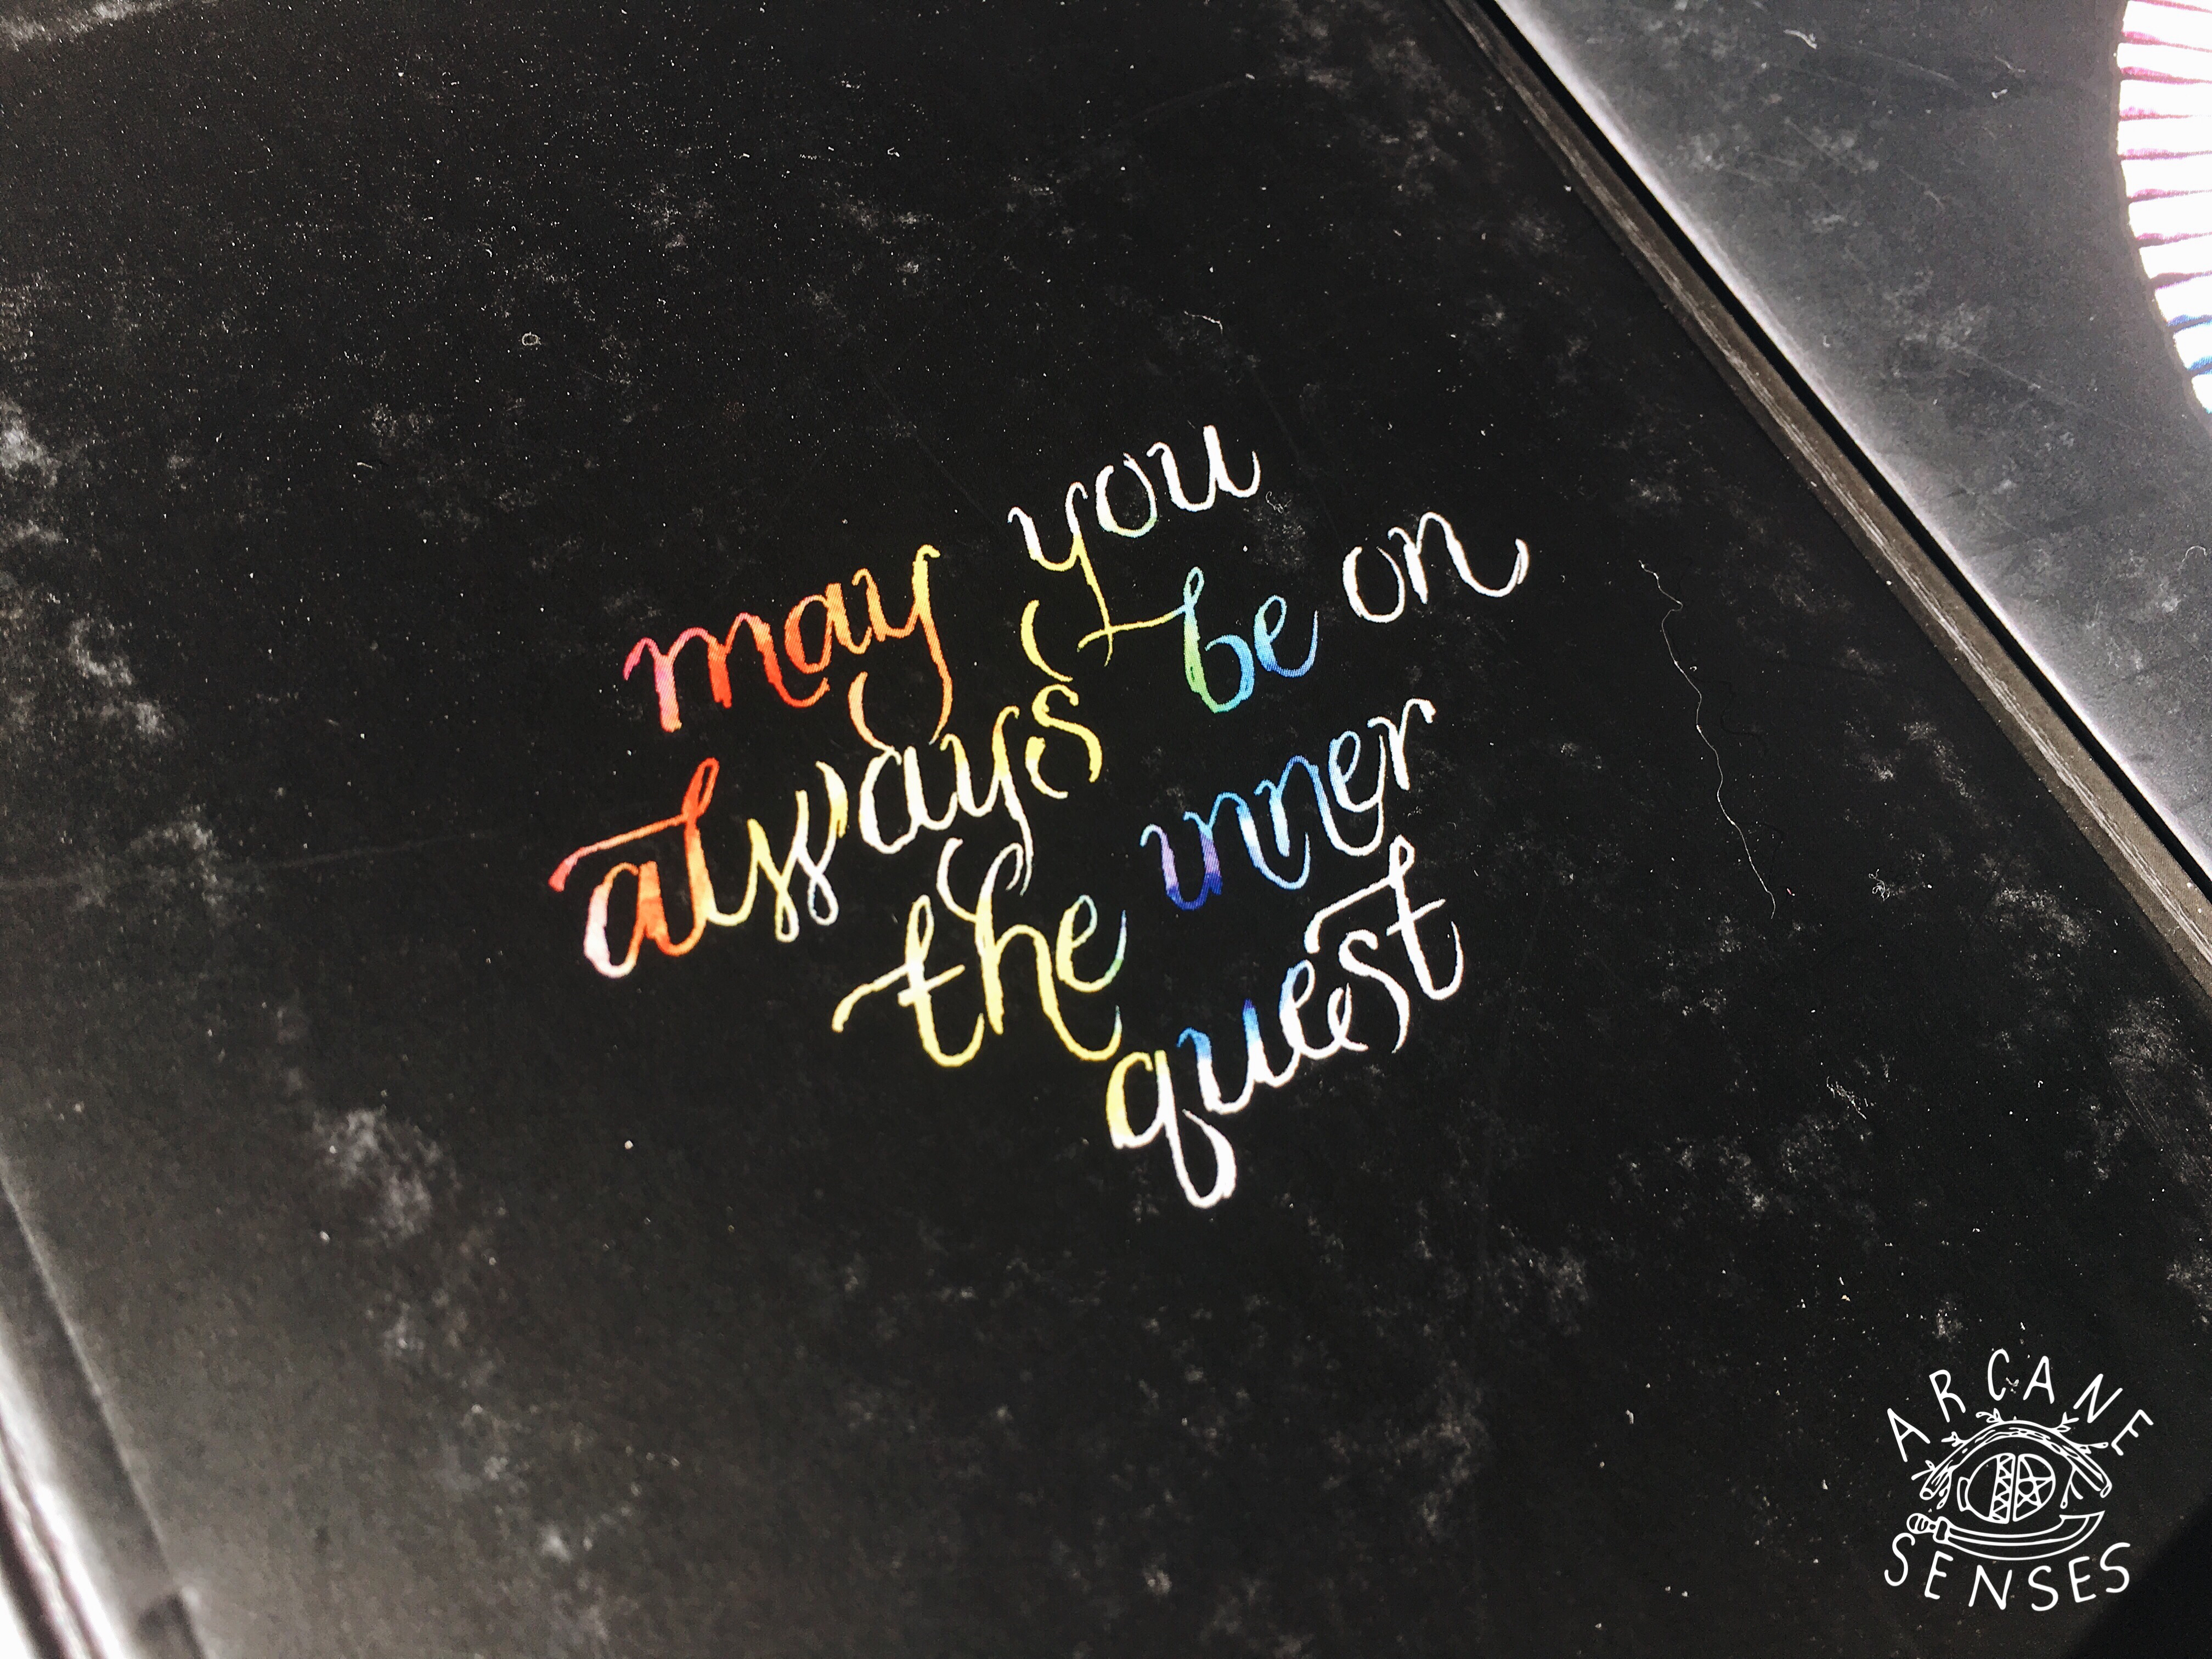 may you
always be on
the inner
quest
ARCANE
SENSES